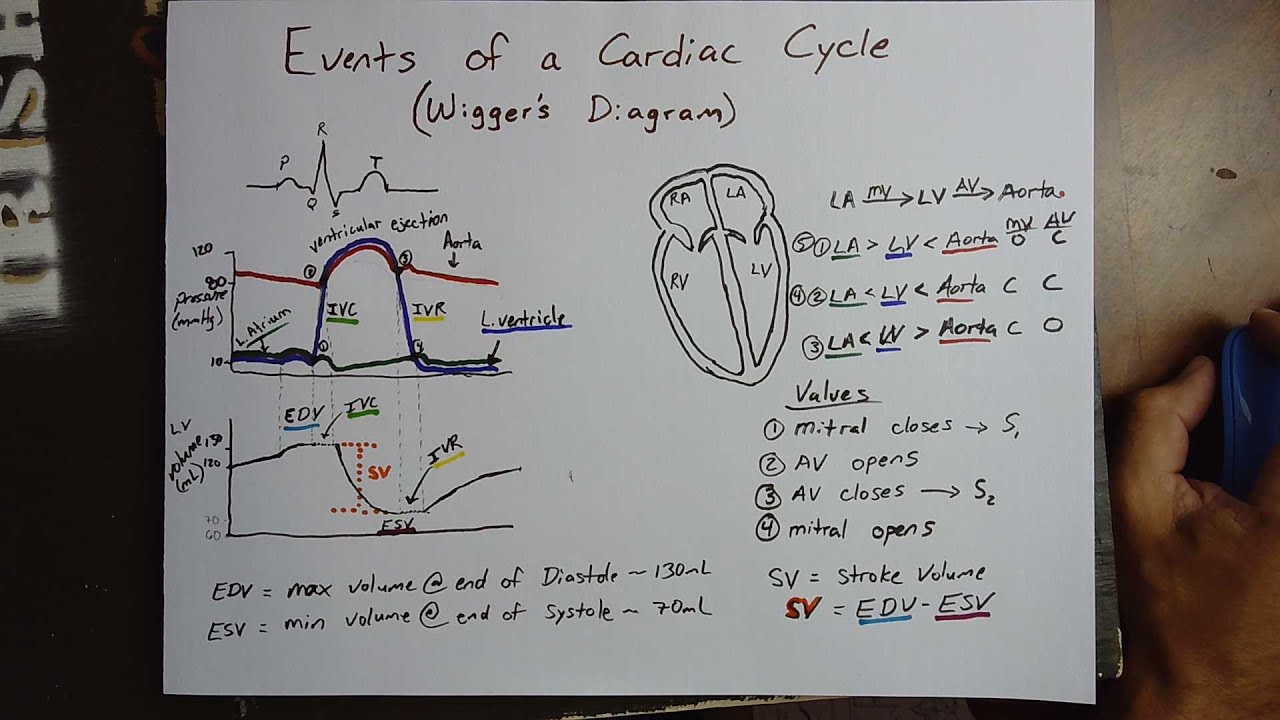 Events of a Cardiac Cycle
(Wigger's Diagram)
P
R
Q
S
T
120
80
10
pressure
(mmHg)
ventricular ejection
Aorta
②
③
IVC
IVR
L. Atrium
①
④
L. ventricle
RA
LA
RV
LV
LA MV→ LV AV→ Aorta
MV AV
⑤① LA > LV < Aorta O C
④② LA < LV < Aorta C C
③ LA < LV > Aorta C O
LV
volume
(mL)
130
120
70
60
EDV
IVC
SV
IVR
ESV
Valves
① mitral closes → S1
② AV opens
③ AV closes → S2
④ mitral opens
EDV = max volume @ end of Diastole ~ 130mL
ESV = min volume @ end of Systole ~ 70mL
SV = Stroke Volume
SV = EDV - ESV